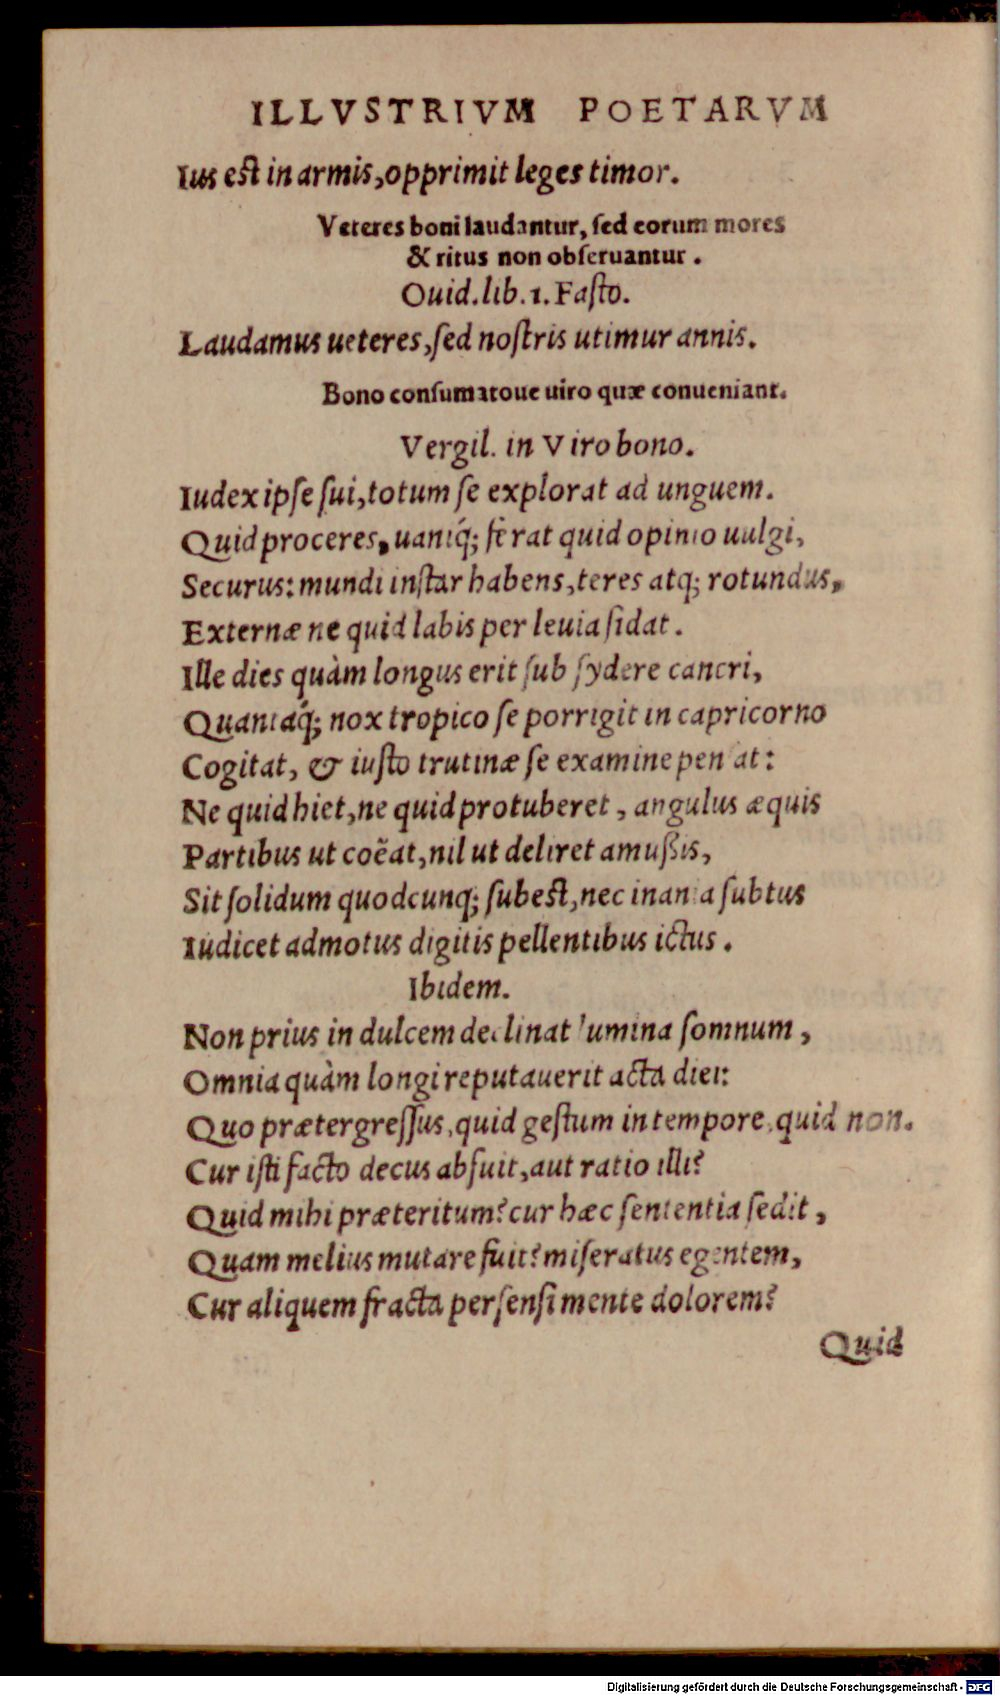 ILLVSTRIVM POETARVM
Ius est in armis, opprimit leges timor.
Veteres boni laudantur, sed eorum mores
& ritus non obseruantur.
Ouid. lib. 1. Fasto.
Laudamus ueteres, sed nostris utimur annis.
Bono consumatoue uiro quæ conueniant.
Vergil. in Viro bono.
Iudex ipse sui, totum se explorat ad unguem.
Quid proceres, uaniq́; ferat quid opinio uulgi,
Securus: mundi instar habens, teres atq; rotundus,
Externæ ne quid labis per leuia sidat.
Ille dies quàm longus erit sub sydere cancri,
Quantaq́; nox tropico se porrigit in capricorno
Cogitat, & iusto trutinæ se examine pensat:
Ne quid hiet, ne quid protuberet, angulus æquis
Partibus ut coẽat, nil ut deliret amußis,
Sit solidum quodcunq; subest, nec inania subtus
Iudicet admotus digitis pellentibus ictus.
Ibidem.
Non prius in dulcem declinat lumina somnum,
Omnia quàm longi reputauerit acta diei:
Quo prætergressus, quid gestum in tempore, quid non.
Cur isti facto decus absuit, aut ratio illi?
Quid mihi præteritum? cur hæc sententia sedit,
Quam melius mutare fuit? miseratus egentem,
Cur aliquem fracta persensi mente dolorem?
Quid
Digitalisierung gefördert durch die Deutsche Forschungsgemeinschaft - DFG